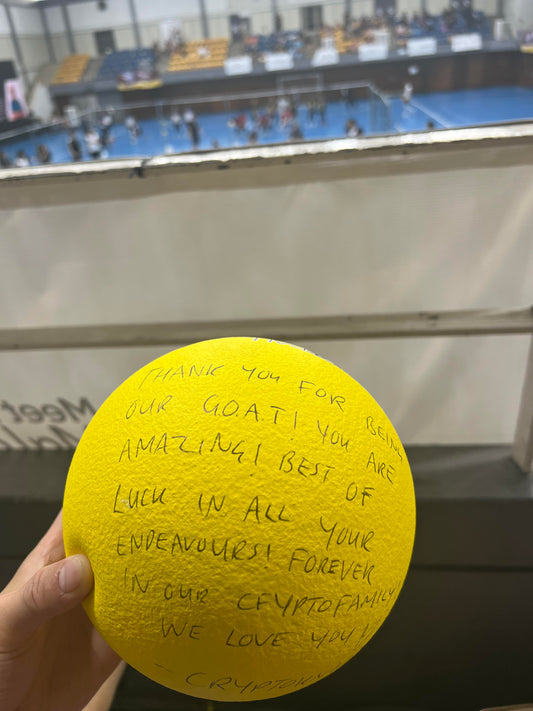 THANK YOU FOR BEING
OUR G.O.A.T! YOU ARE
AMAZING! BEST OF
LUCK IN ALL YOUR
ENDEAVOURS! FOREVER
IN OUR CFYPTOFAMILY
WE LOVE YOU!
Meet